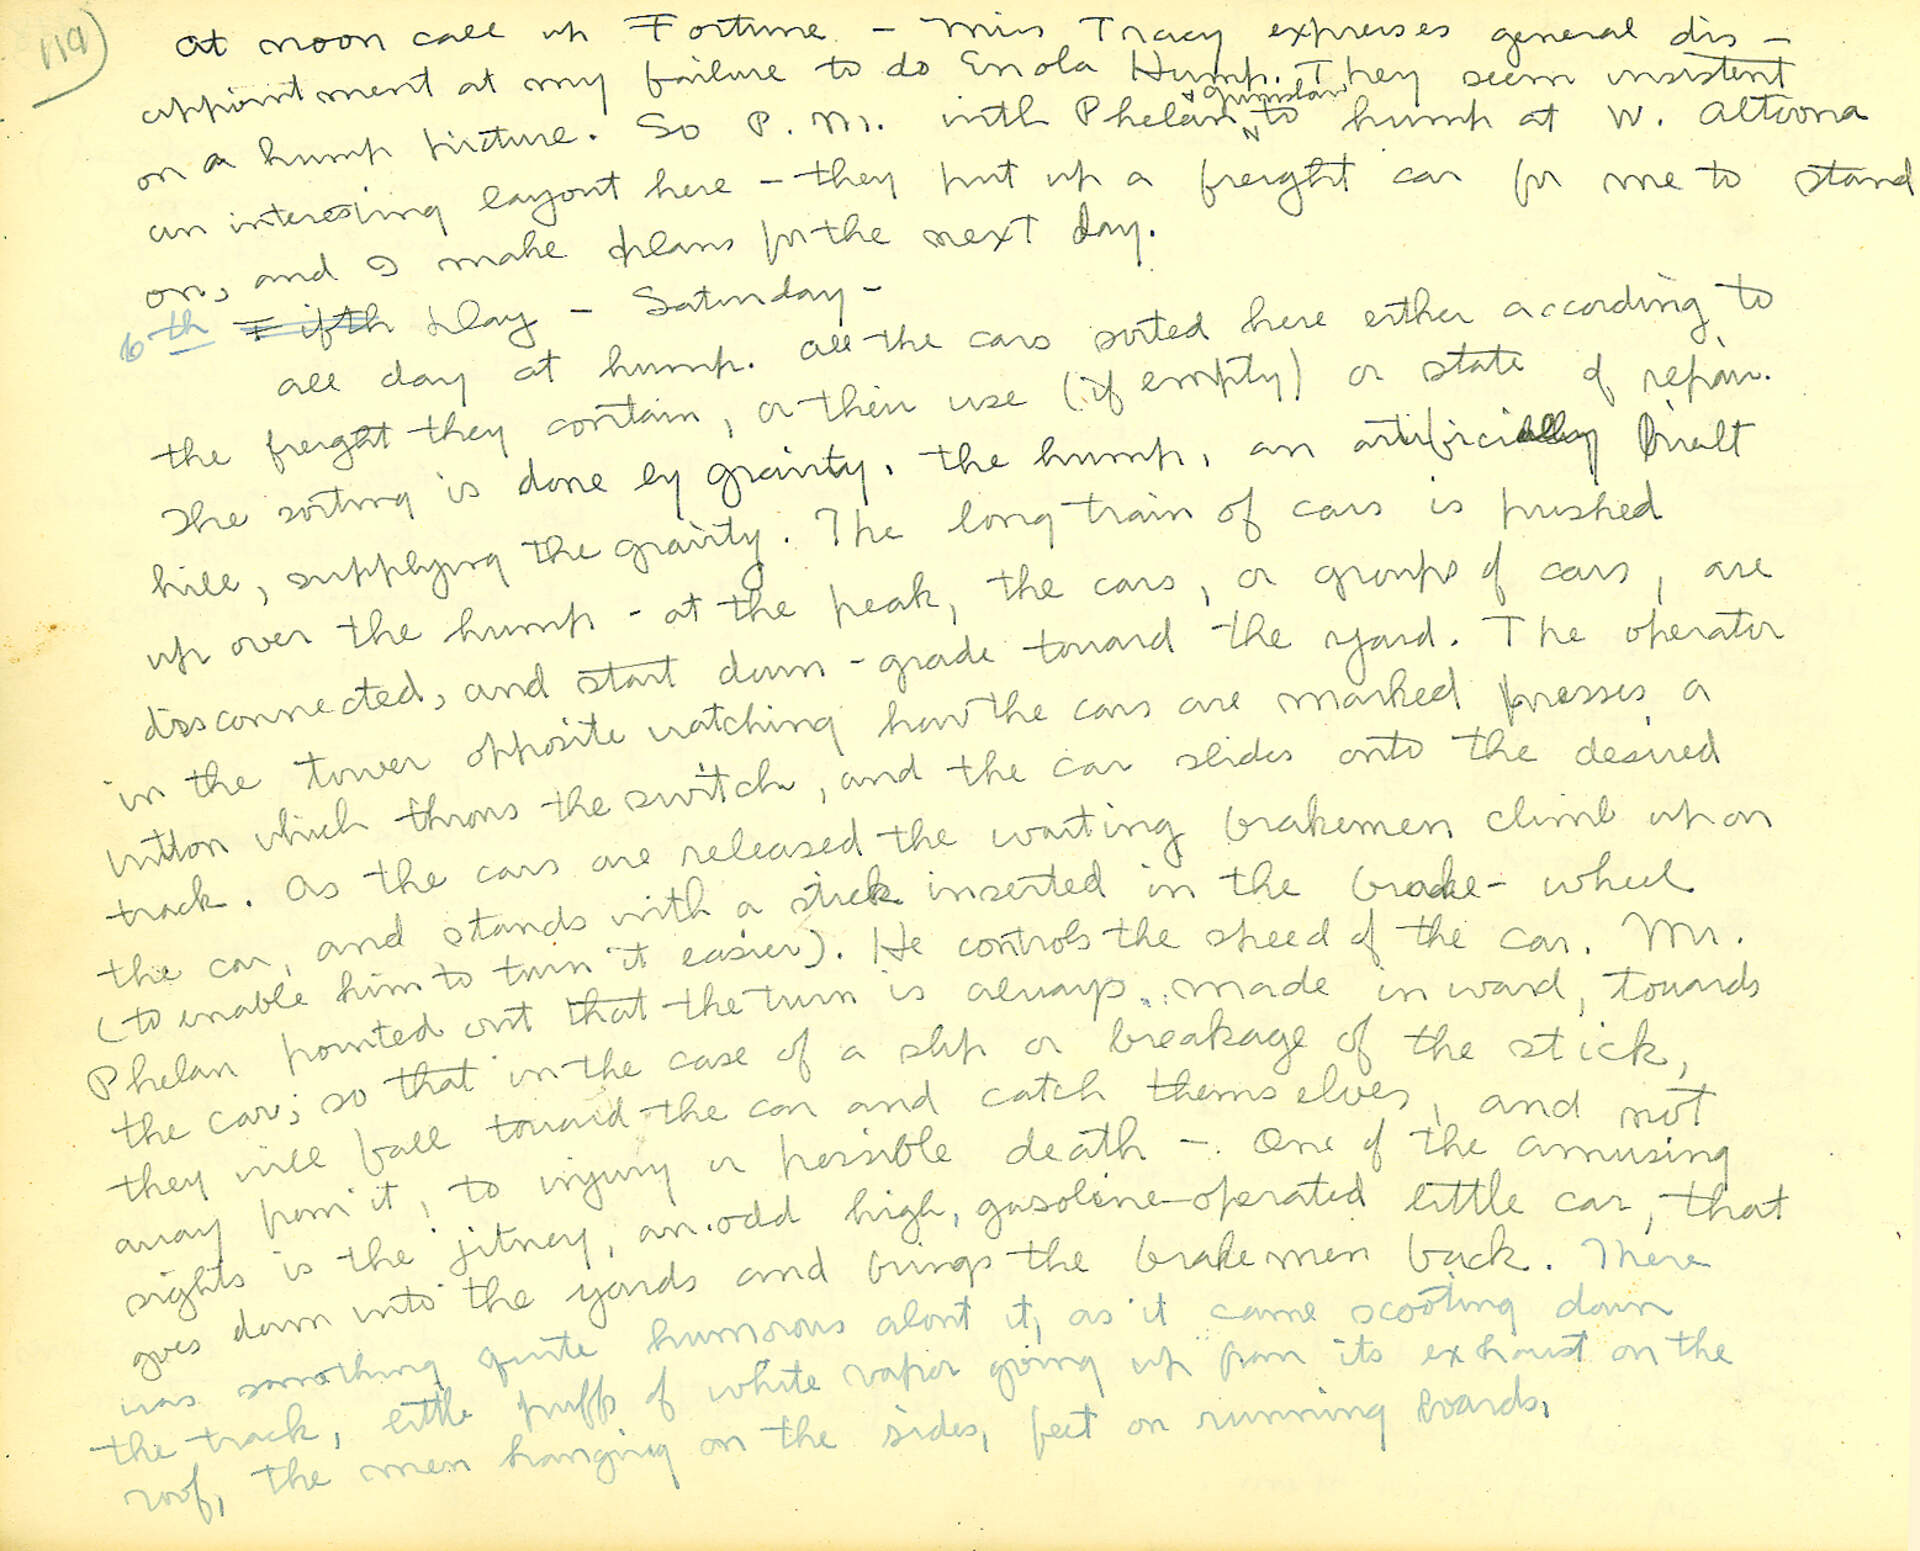 119)
At noon call up Fortune - Miss Tracy expresses general dis-
appointment at my failure to do Enola Hump. They seem insistent
on a hump picture. So P.M. with Phelan + Grimslaw to hump at W. Altoona
an interesting layout here - they put up a freight car for me to stand
on, and I make plans for the next day.
6th Fifth Day - Saturday -
All day at hump. All the cars sorted here either according to
the freight they contain, or their use (if empty) or state of repair.
The sorting is done by gravity, the hump, an artificially built
hill, supplying the gravity. The long train of cars is pushed
up over the hump - at the peak, the cars, or groups of cars, are
disconnected, and start down-grade toward the yard. The operator
in the tower opposite watching how the cars are marked presses a
button which throws the switch, and the car slides onto the desired
track. As the cars are released the waiting brakemen climb upon
the car, and stands with a stick inserted in the brake-wheel
(to enable him to turn it easier). He controls the speed of the car. Mr.
Phelan pointed out that the turn is always made inward, towards
the car; so that in the case of a slip or breakage of the stick,
they will fall toward the car and catch themselves, and not
away from it, to injury or possible death -. One of the amusing
sights is the jitney, an odd high, gasoline-operated little car, that
goes down into the yards and brings the brakemen back. There
was something quite humorous about it, as it came scooting down
the track, little puffs of white vapor going up from its exhaust on the
roof, the men hanging on the sides, feet on running boards.